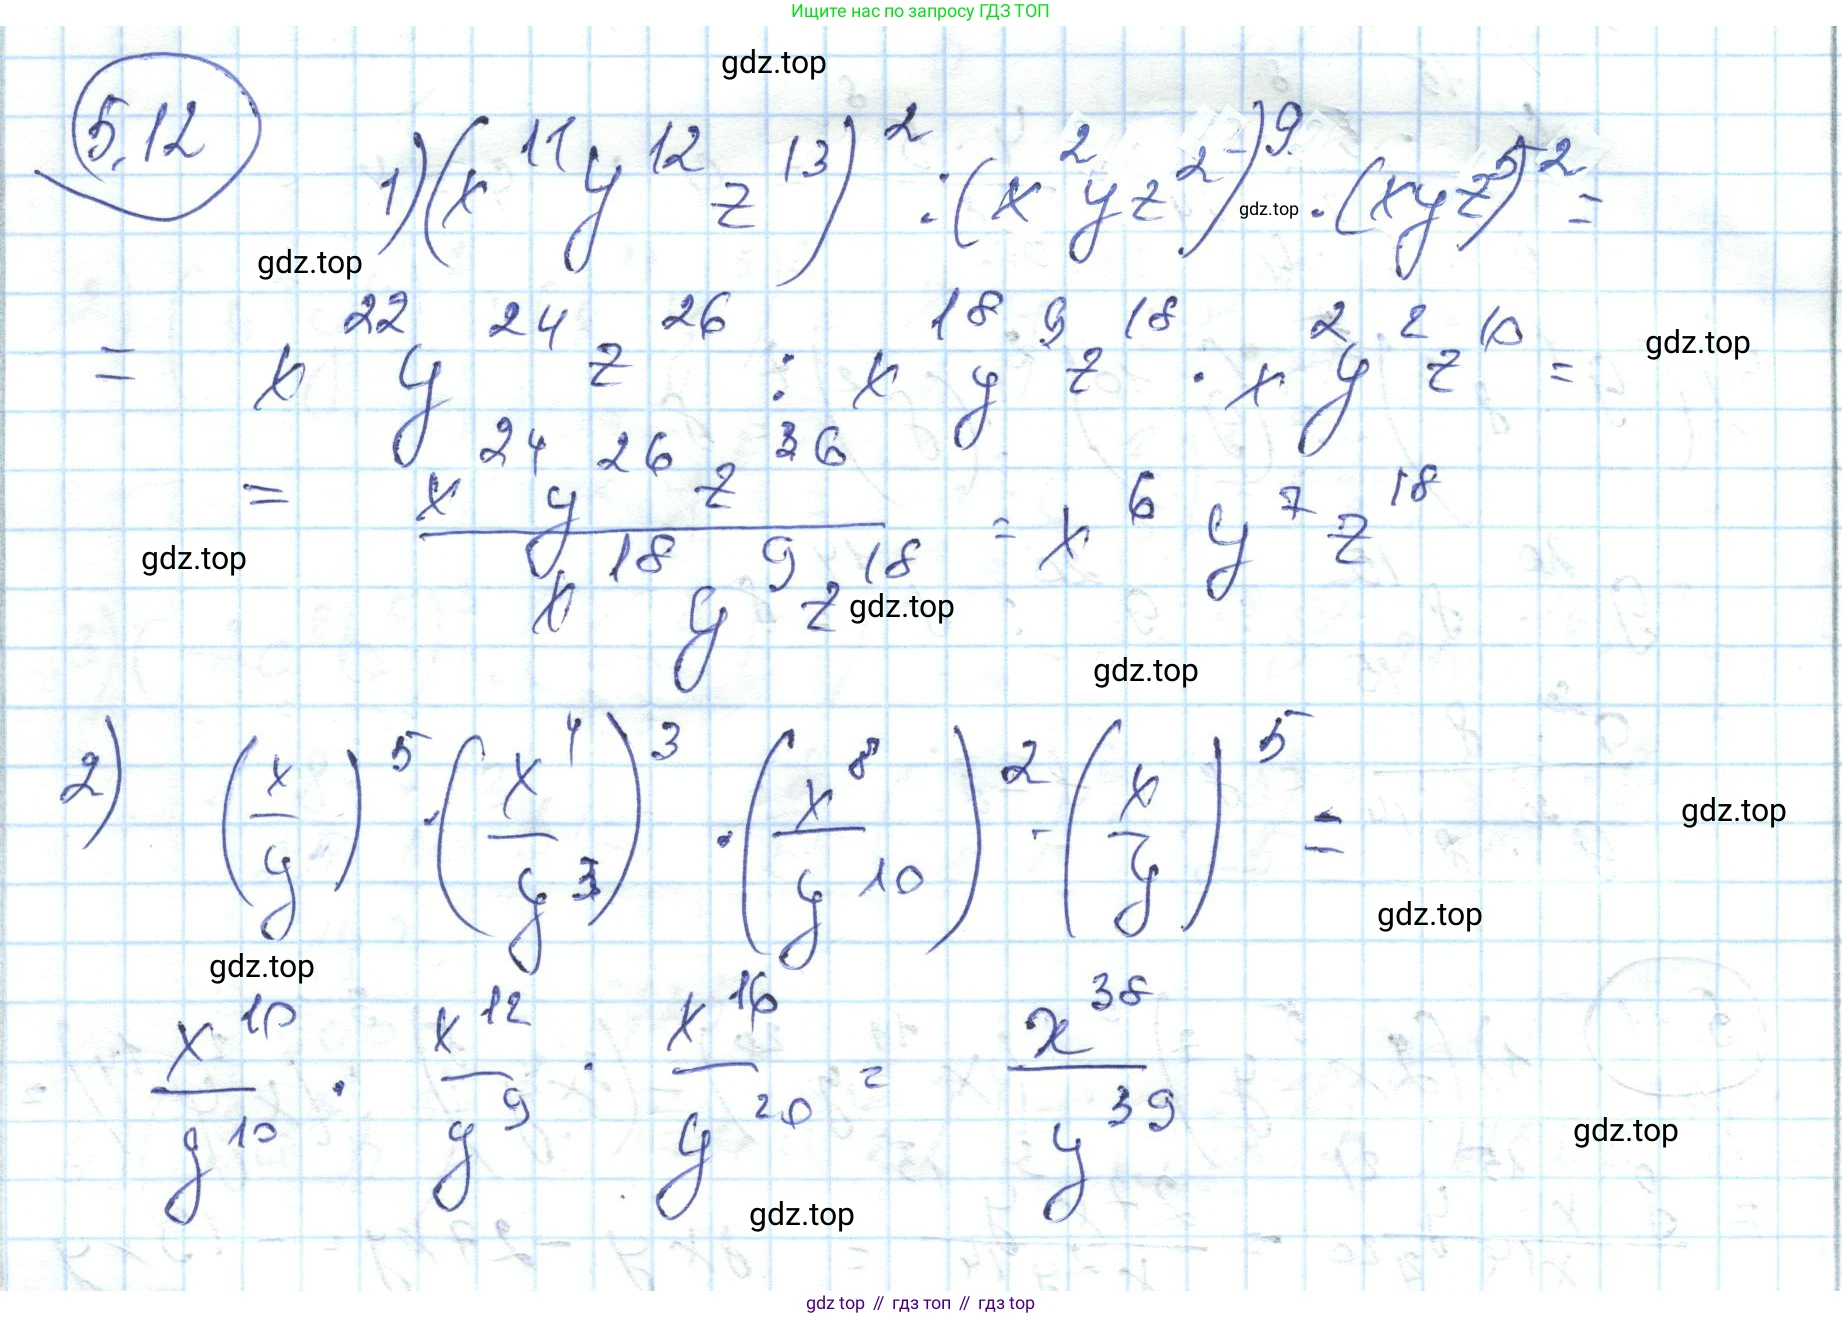 Ищите нас по запросу ГДЗ ТОП
gdz.top
5.12
1) (x^11 y^12 z^13)^2 : (x^2 y z^2)^9 · (x y z^5)^2 =
gdz.top
gdz.top
= x^22 y^24 z^26 : x^18 y^9 z^18 · x^2 y^2 z^10 =
gdz.top
= x^24 y^26 z^36 / x^18 y^9 z^18 = x^6 y^7 z^18
gdz.top
gdz.top
gdz.top
2) (x/y)^5 · (x^4/y^3)^3 · (x^8/y^10)^2 · (x/y)^5 =
gdz.top
gdz.top
gdz.top
x^10/y^10 · x^12/y^9 · x^16/y^20 = x^38/y^39
gdz.top
gdz.top
gdz top // гдз топ // гдз top